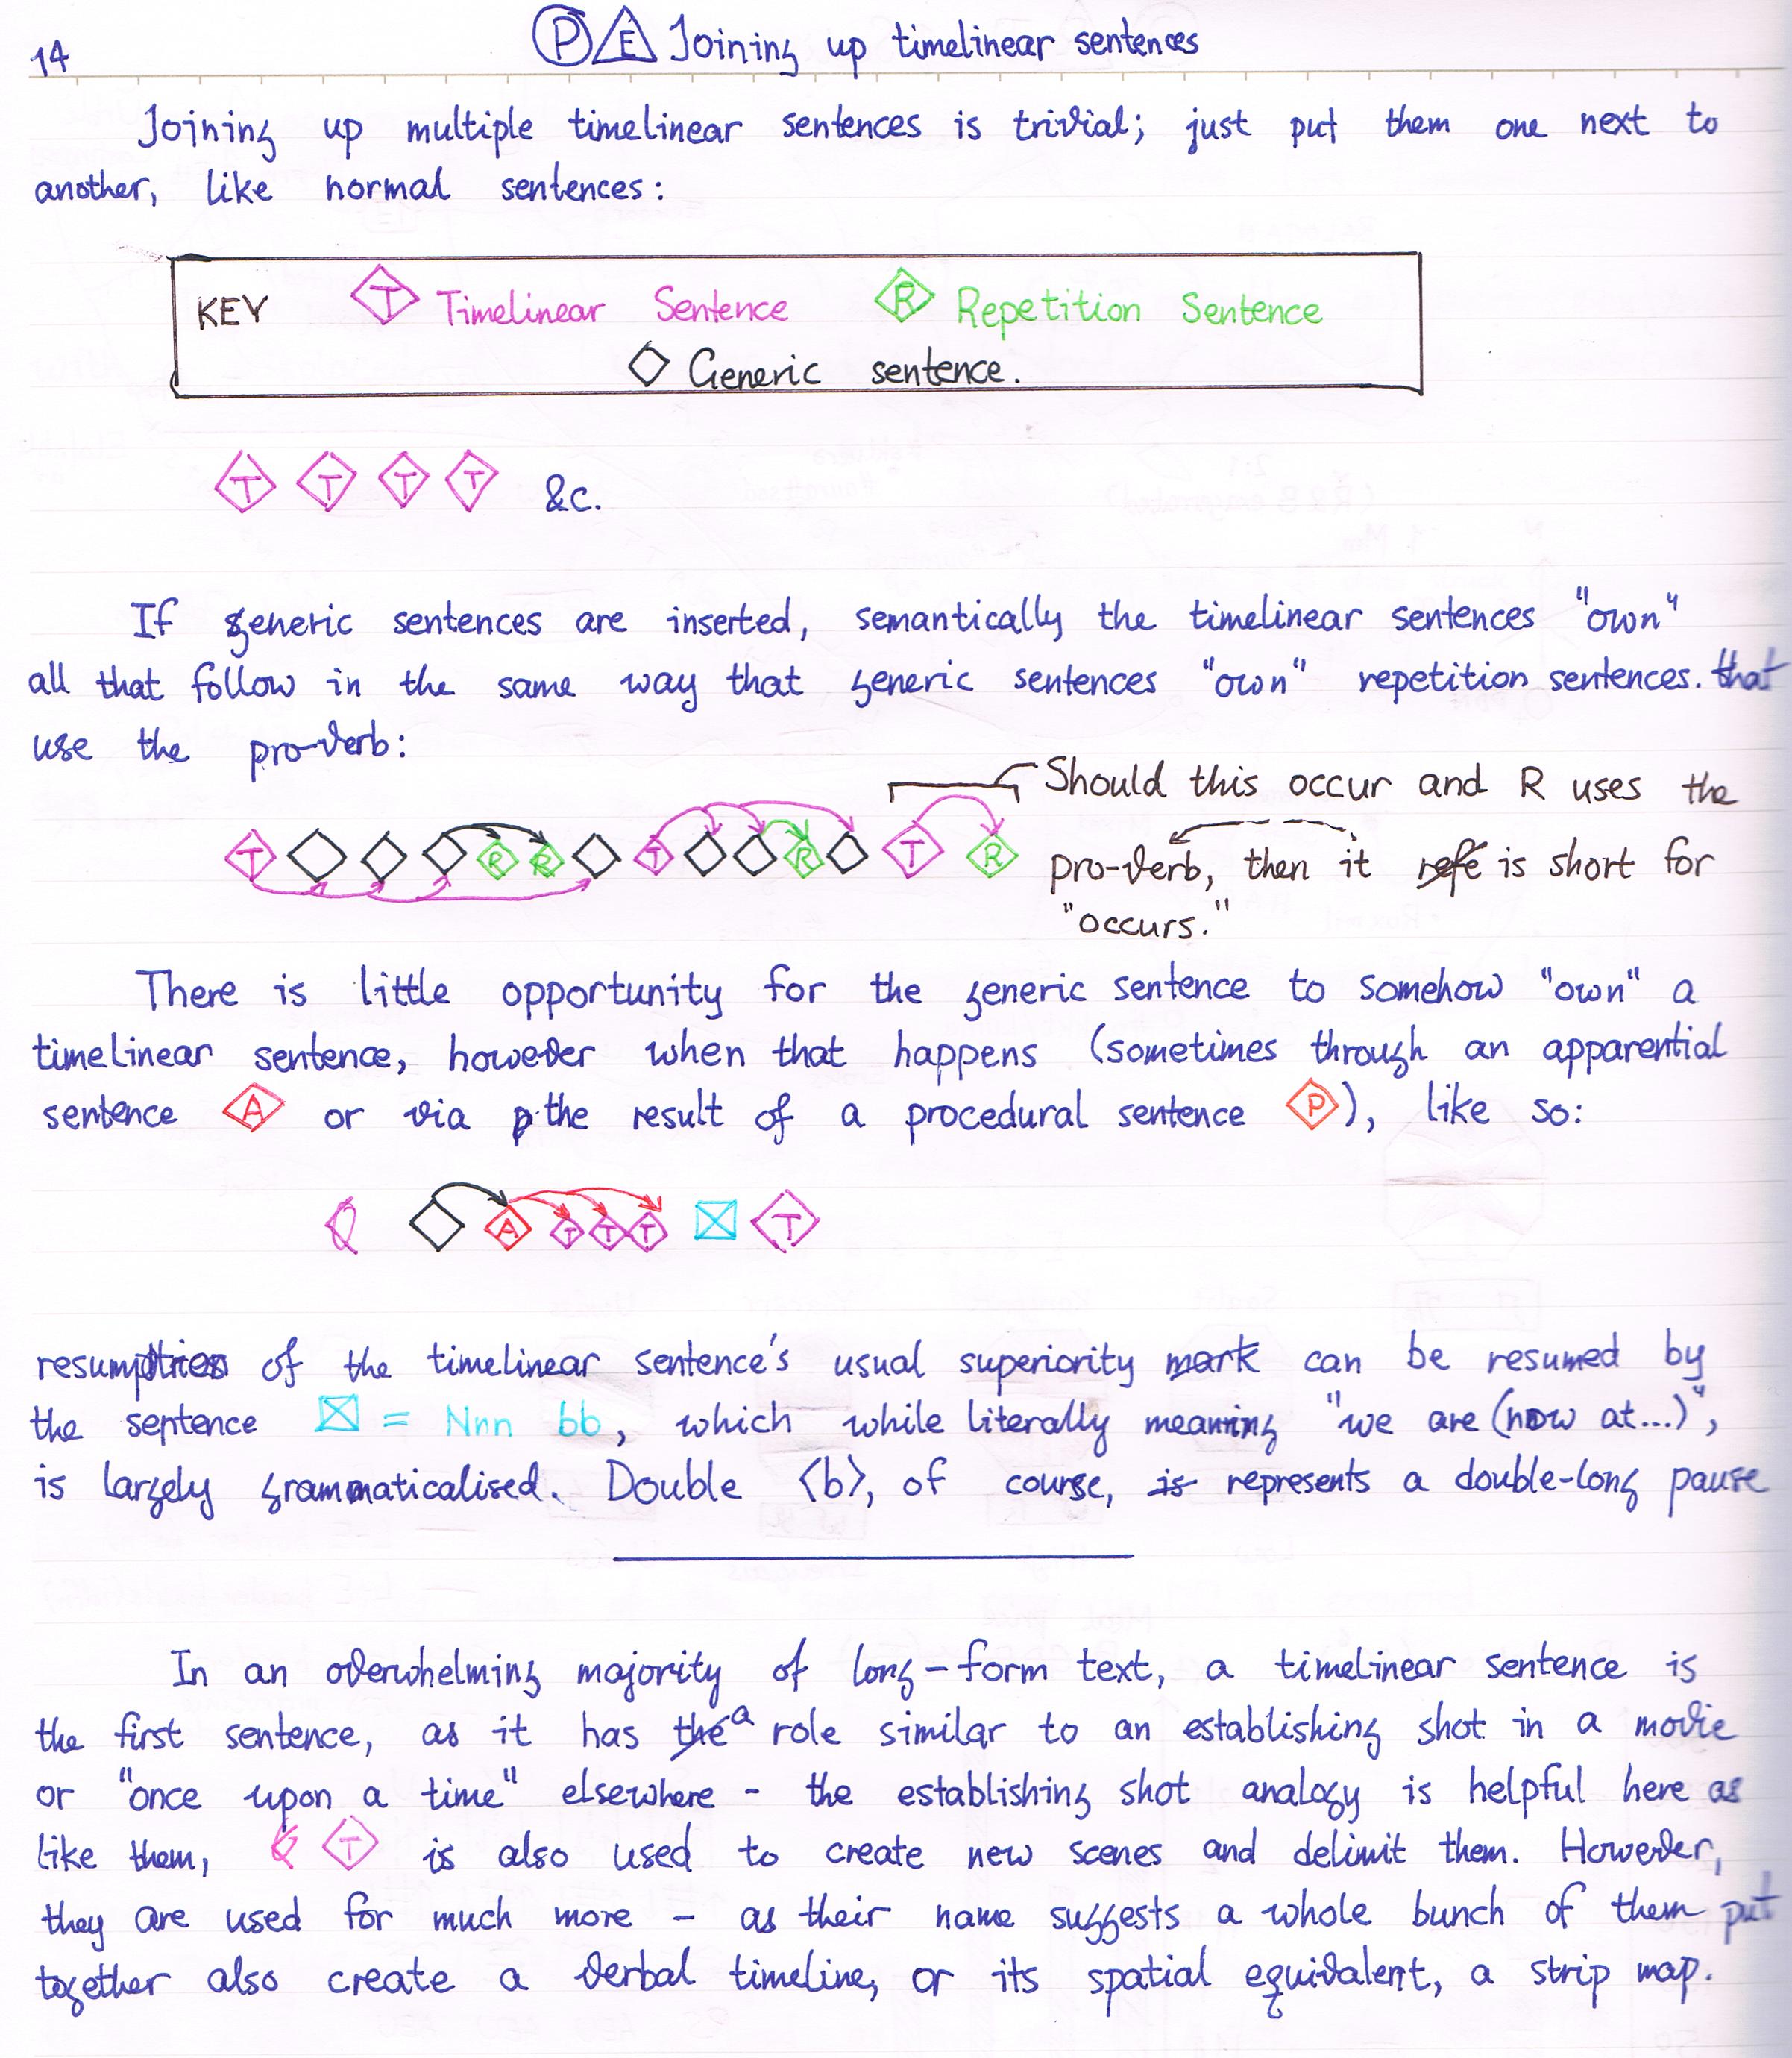 14
P E Joining up timelinear sentences
Joining up multiple timelinear sentences is trivial; just put them one next to
another, like normal sentences:
KEY T Timelinear Sentence R Repetition Sentence
Generic sentence.
T T T T &c.
If generic sentences are inserted, semantically the timelinear sentences "own"
all that follow in the same way that generic sentences "own" repetition sentences. that
use the pro-verb:
Should this occur and R uses the
T R R T R T R pro-verb, then it refe is short for
"occurs."
There is little opportunity for the generic sentence to somehow "own" a
timelinear sentence, however when that happens (sometimes through an apparential
sentence A or via p the result of a procedural sentence P), like so:
A T T T T
resumption of the timelinear sentence's usual superiority mark can be resumed by
the sentence = Nnn bb, which while literally meaning "we are (now at...)",
is largely grammaticalised. Double <b>, of course, is represents a double-long pause
In an overwhelming majority of long-form text, a timelinear sentence is
the first sentence, as it has the a role similar to an establishing shot in a movie
or "once upon a time" elsewhere - the establishing shot analogy is helpful here as
like them, T is also used to create new scenes and delimit them. However,
they are used for much more - as their name suggests a whole bunch of them put
together also create a verbal timeline, or its spatial equivalent, a strip map.